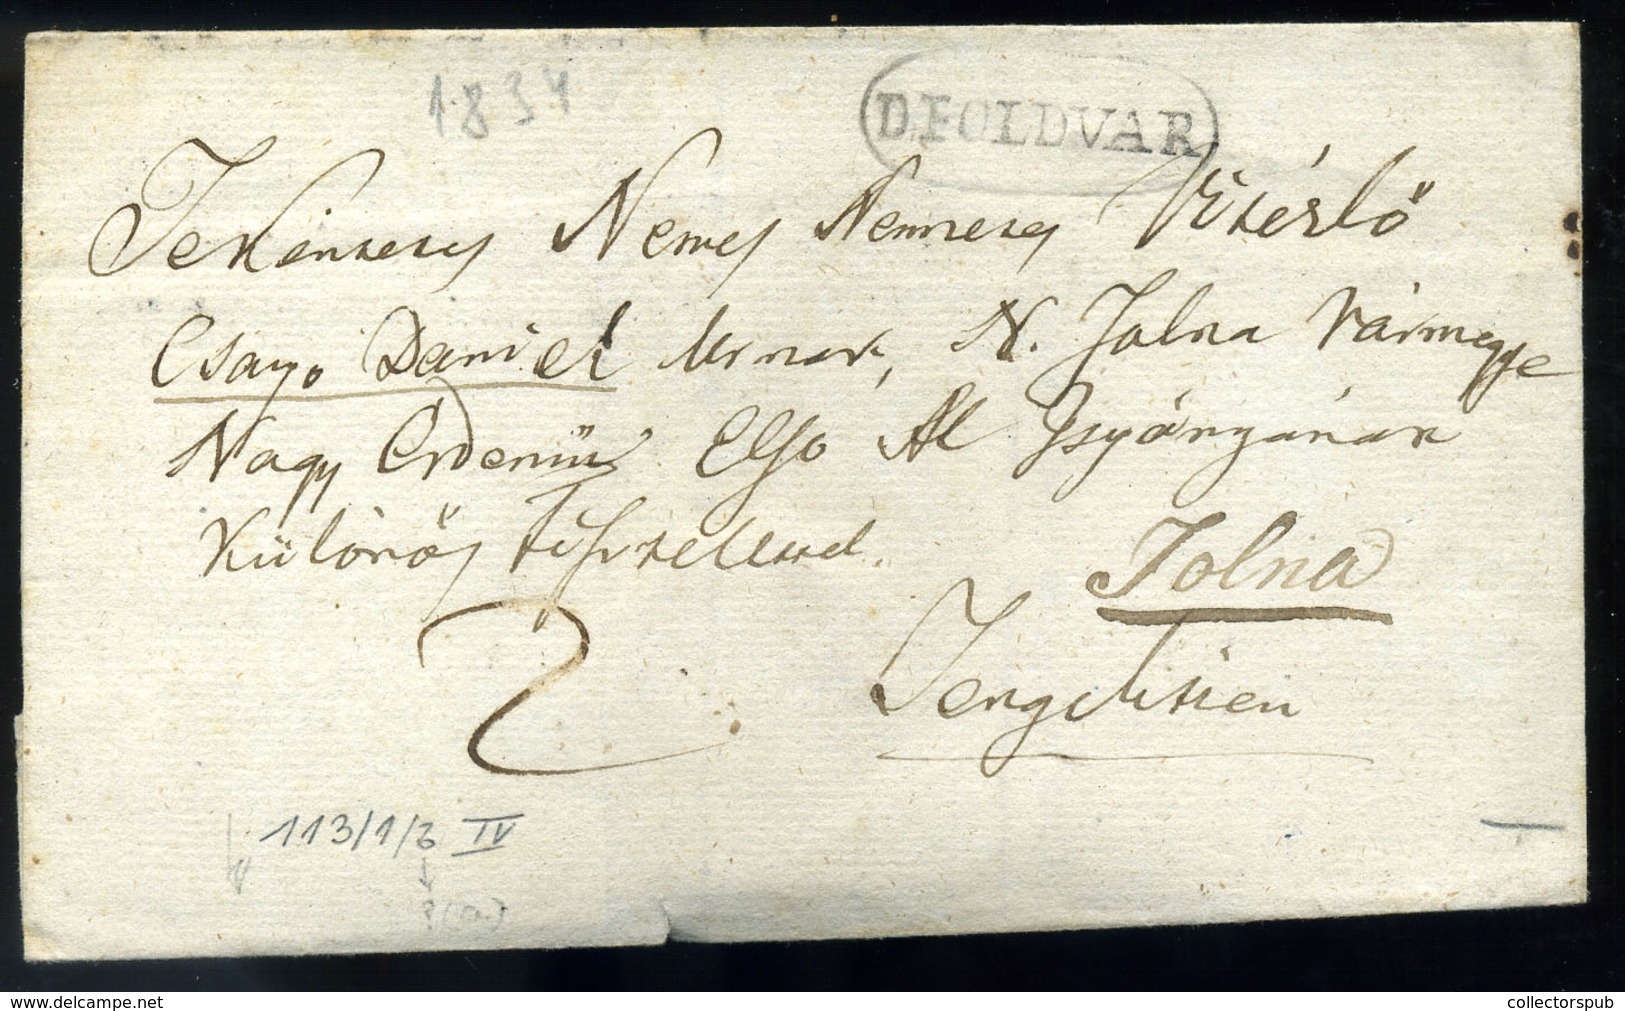 1834
D.FOLDVAR
Tekéntetes Nemes Nemzetes Vitézlő
Csapo Daniel Urnak, N. Tolna Vármegye
Nagy Erdemü Elso Al Ispányjának
Külőnős tisztelettel.
Tolna
2
Tengelitzen
113/1/3 IV
www.delcampe.net
collectorspub